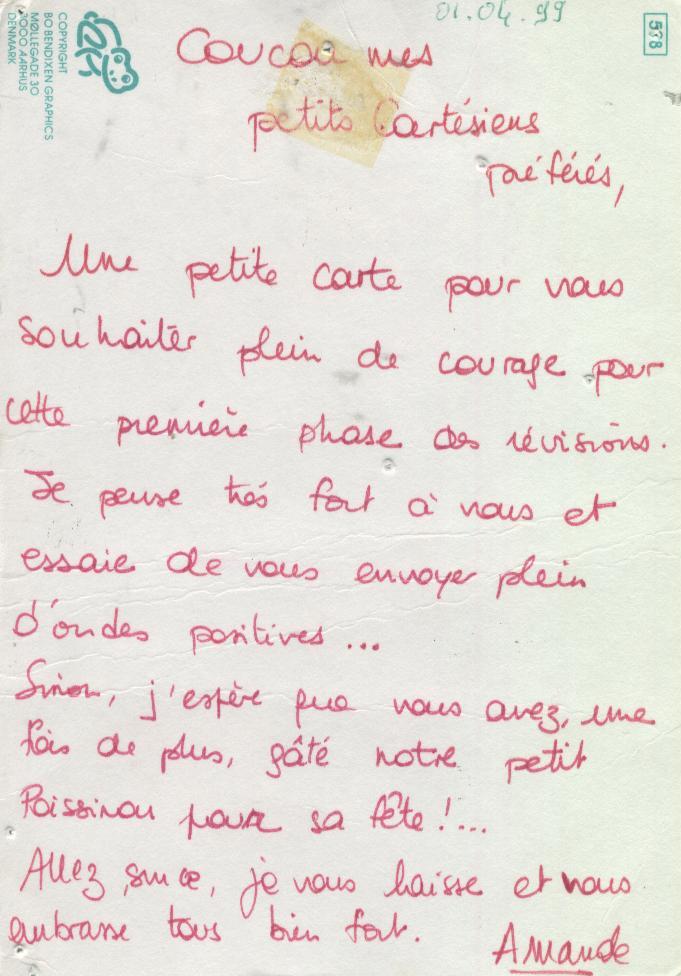 01.04.99
578
COPYRIGHT
BO BENDIXEN GRAPHICS
MØLLEGADE 30
8000 AARHUS
DENMARK
Coucou mes
petits Cartésiens
préférés,
Une petite carte pour vous
souhaiter plein de courage pour
cette première phase des révisions.
Je pense très fort à vous et
essaie de vous envoyer plein
d'ondes positives ...
Sinon, j'espère que vous avez, une
fois de plus, gâté notre petit
Poissinou pour sa fête !...
Allez, sur ce, je vous laisse et vous
embrasse tous bien fort.
Amande